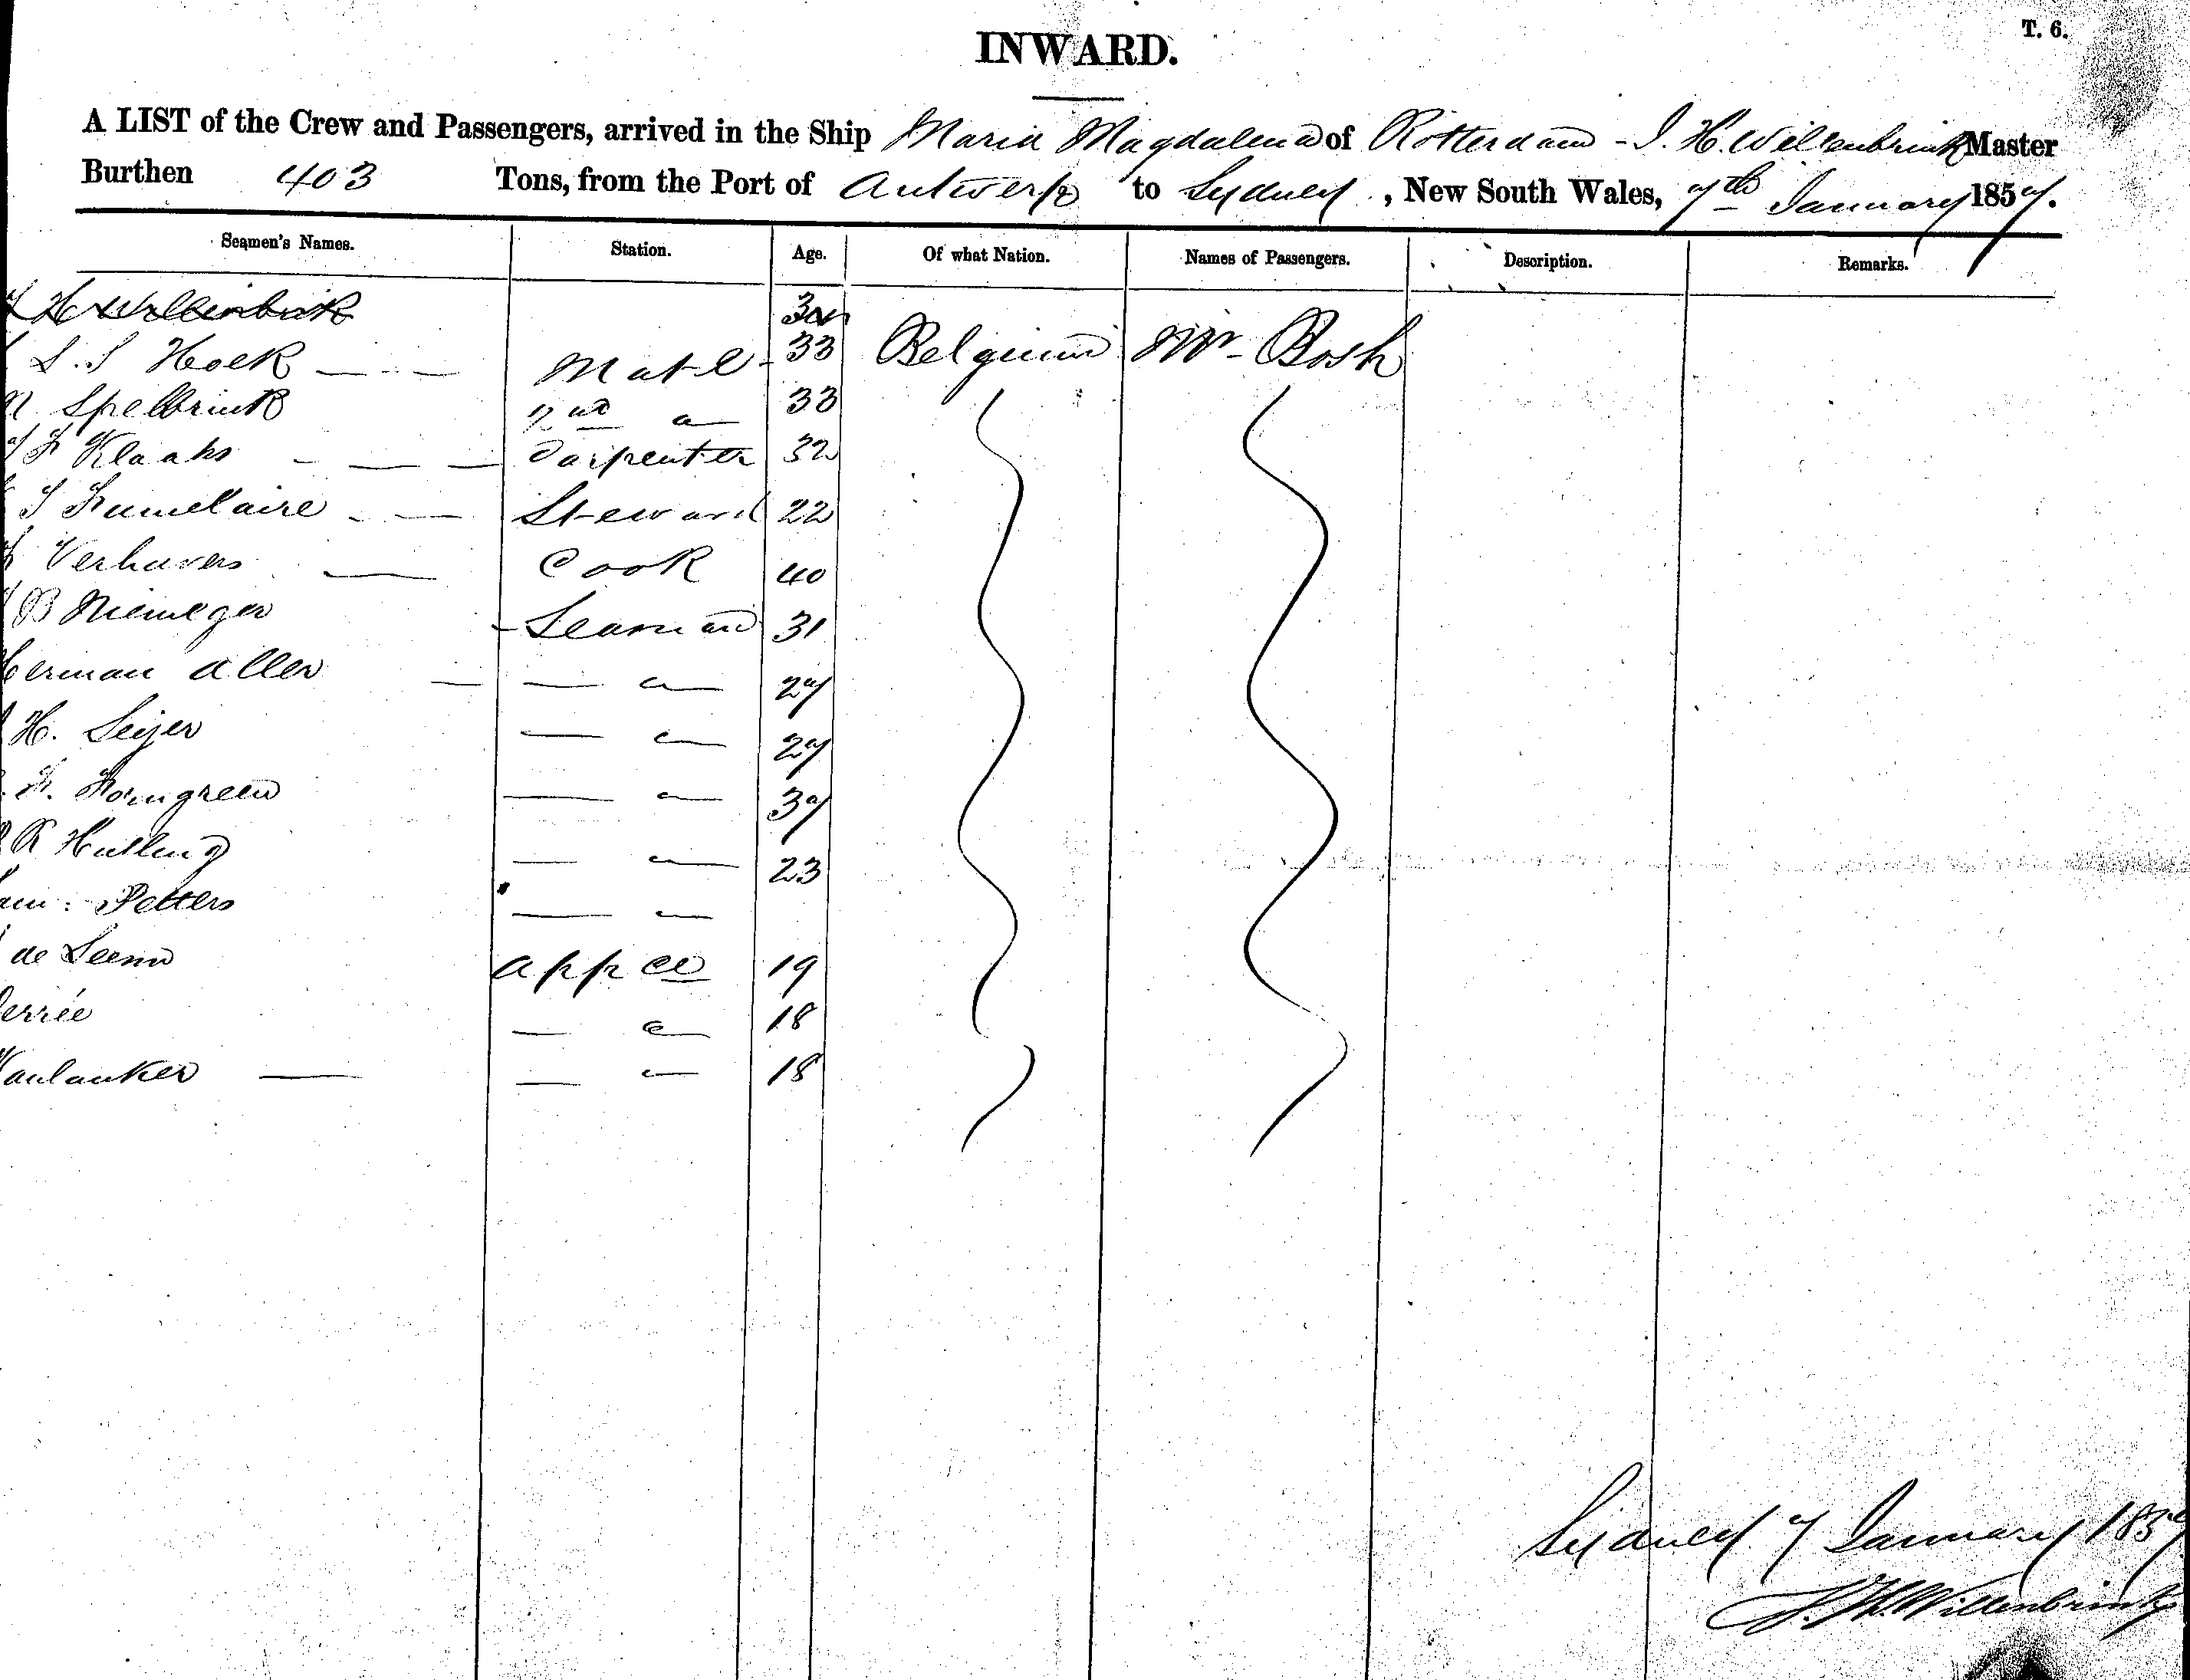 T. 6.
INWARD.
A LIST of the Crew and Passengers, arrived in the Ship Maria Magdalena of Rotterdam - J. H. Willenbrink Master
Burthen 403 Tons, from the Port of Antwerp to Sydney, New South Wales, 7th January 1857.
Seamen's Names. Station. Age. Of what Nation. Names of Passengers. Description. Remarks.
H Willenbrink
Hoek Mate 33 Belgium Mr Bosh
Spelbrink 2nd 33
Klaaks Carpenter 32
Steward 22
Verhavers Cook 40
B Niemeger Seaman 31
Herman Aller 27
H. Seijer 27
F. 37
R Hulling 23
Petters
de Leenw appce 19
18
18
Sydney 7 January 1857
J. H. Willenbrink